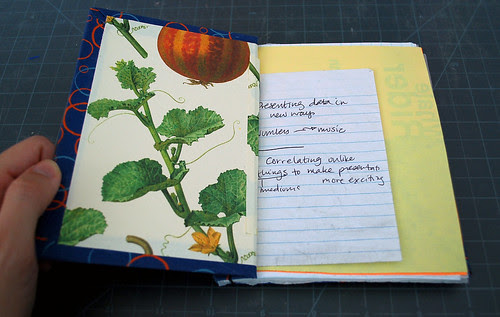 Presenting data in
new ways
music
Correlating unlike
things to make presentation
more exciting
mediums